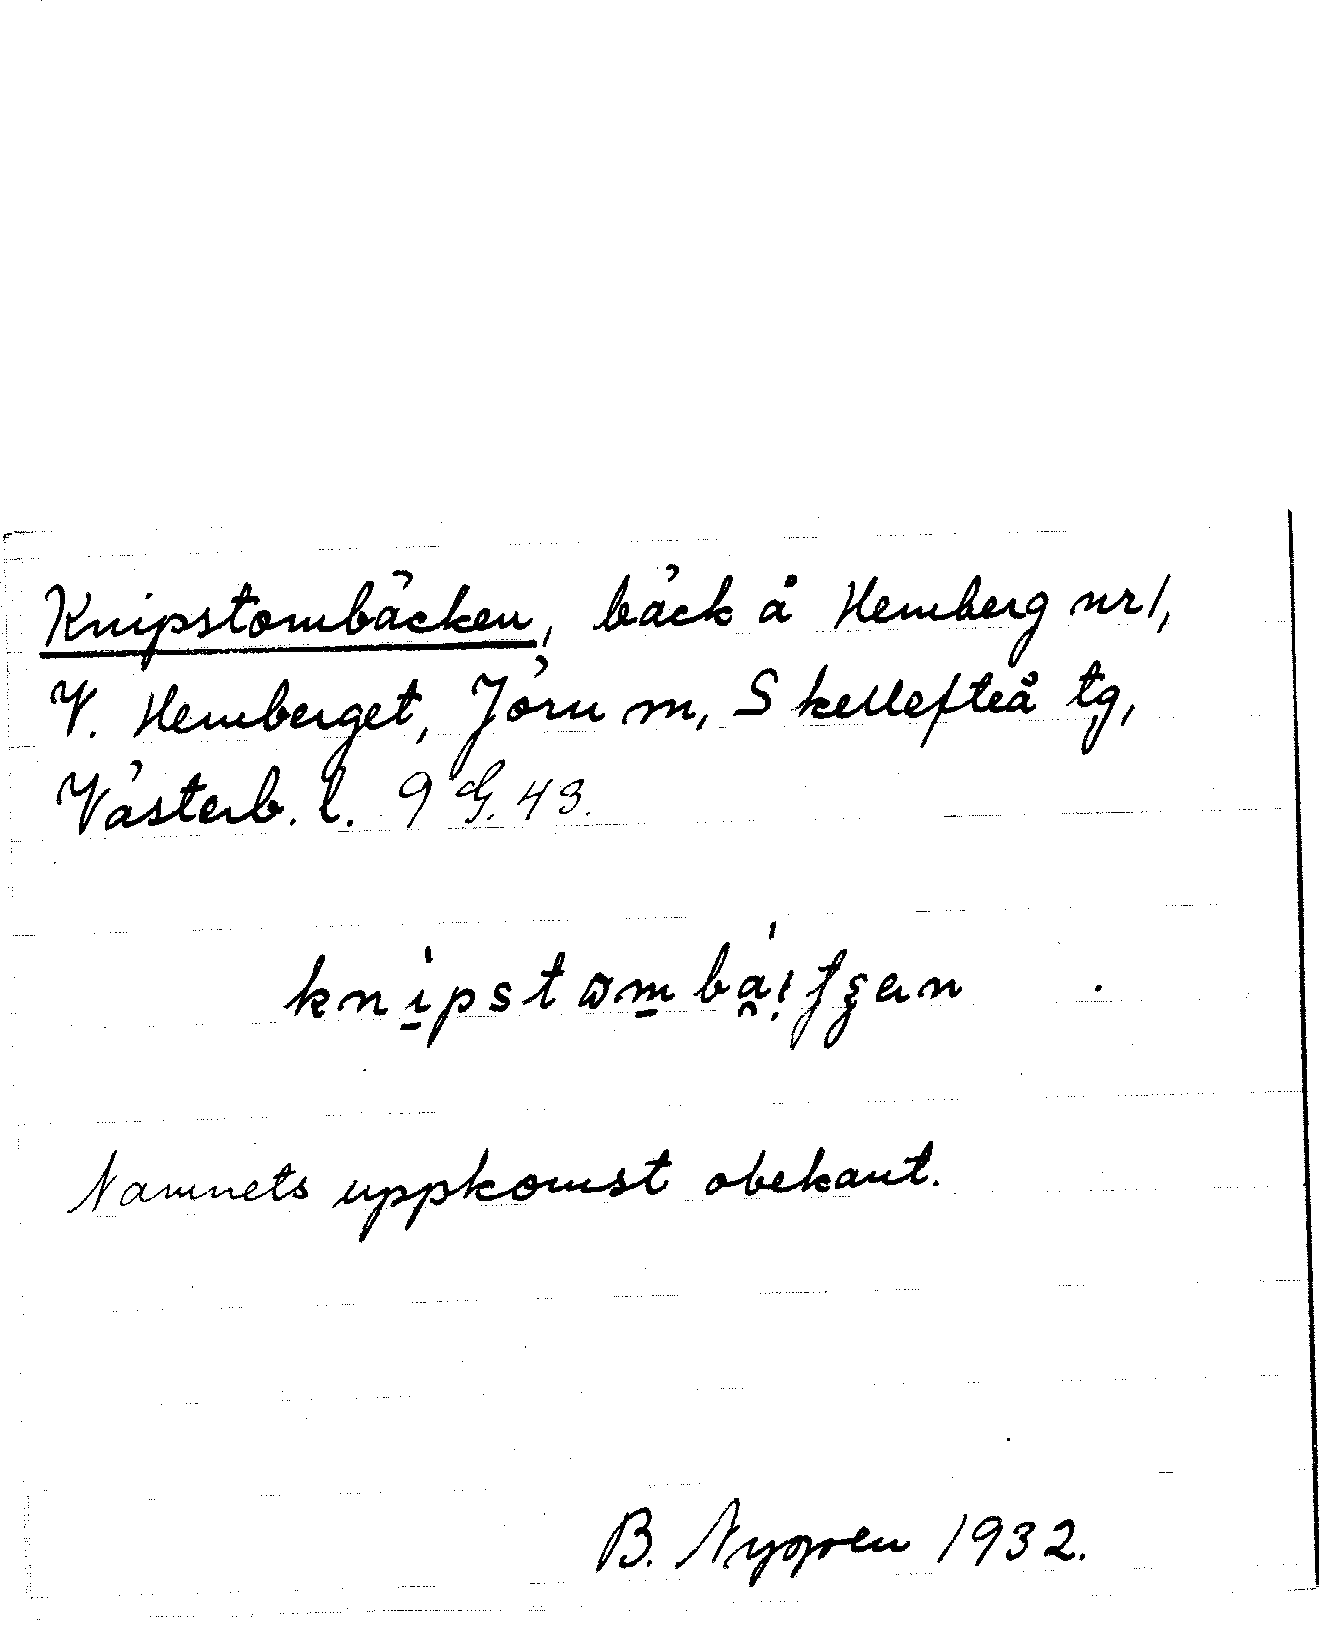 Knipstombäcken, bäck å Hemberg nr 1,
V. Hemberget, Jörn sn, Skellefteå tg,
Västerb. l. 9 G. 43.
Namnets uppkomst obekant.
B. Nygren 1932.